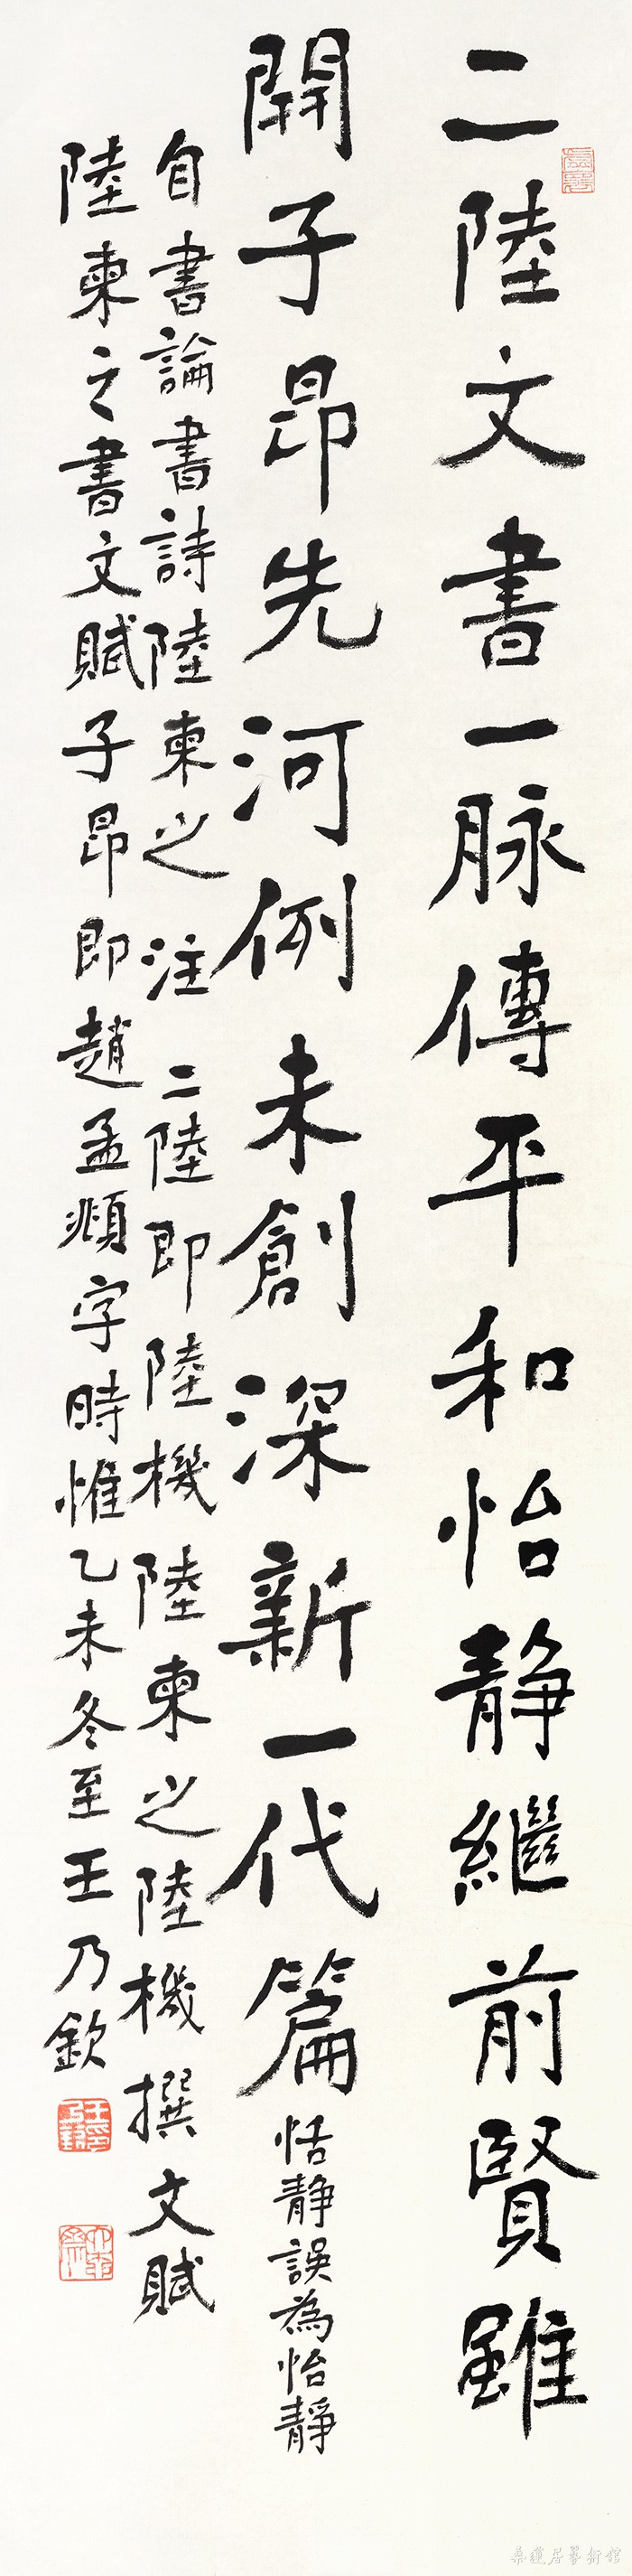 二陸文書一脉傳平和怡静繼前賢雖
開子昂先河例未創深新一代篇恬静誤為怡静
自書論書詩陸柬之注二陸即陸機陸柬之陸機撰文賦
陸柬之書文賦子昂即趙孟頫字時惟乙未冬至王乃欽